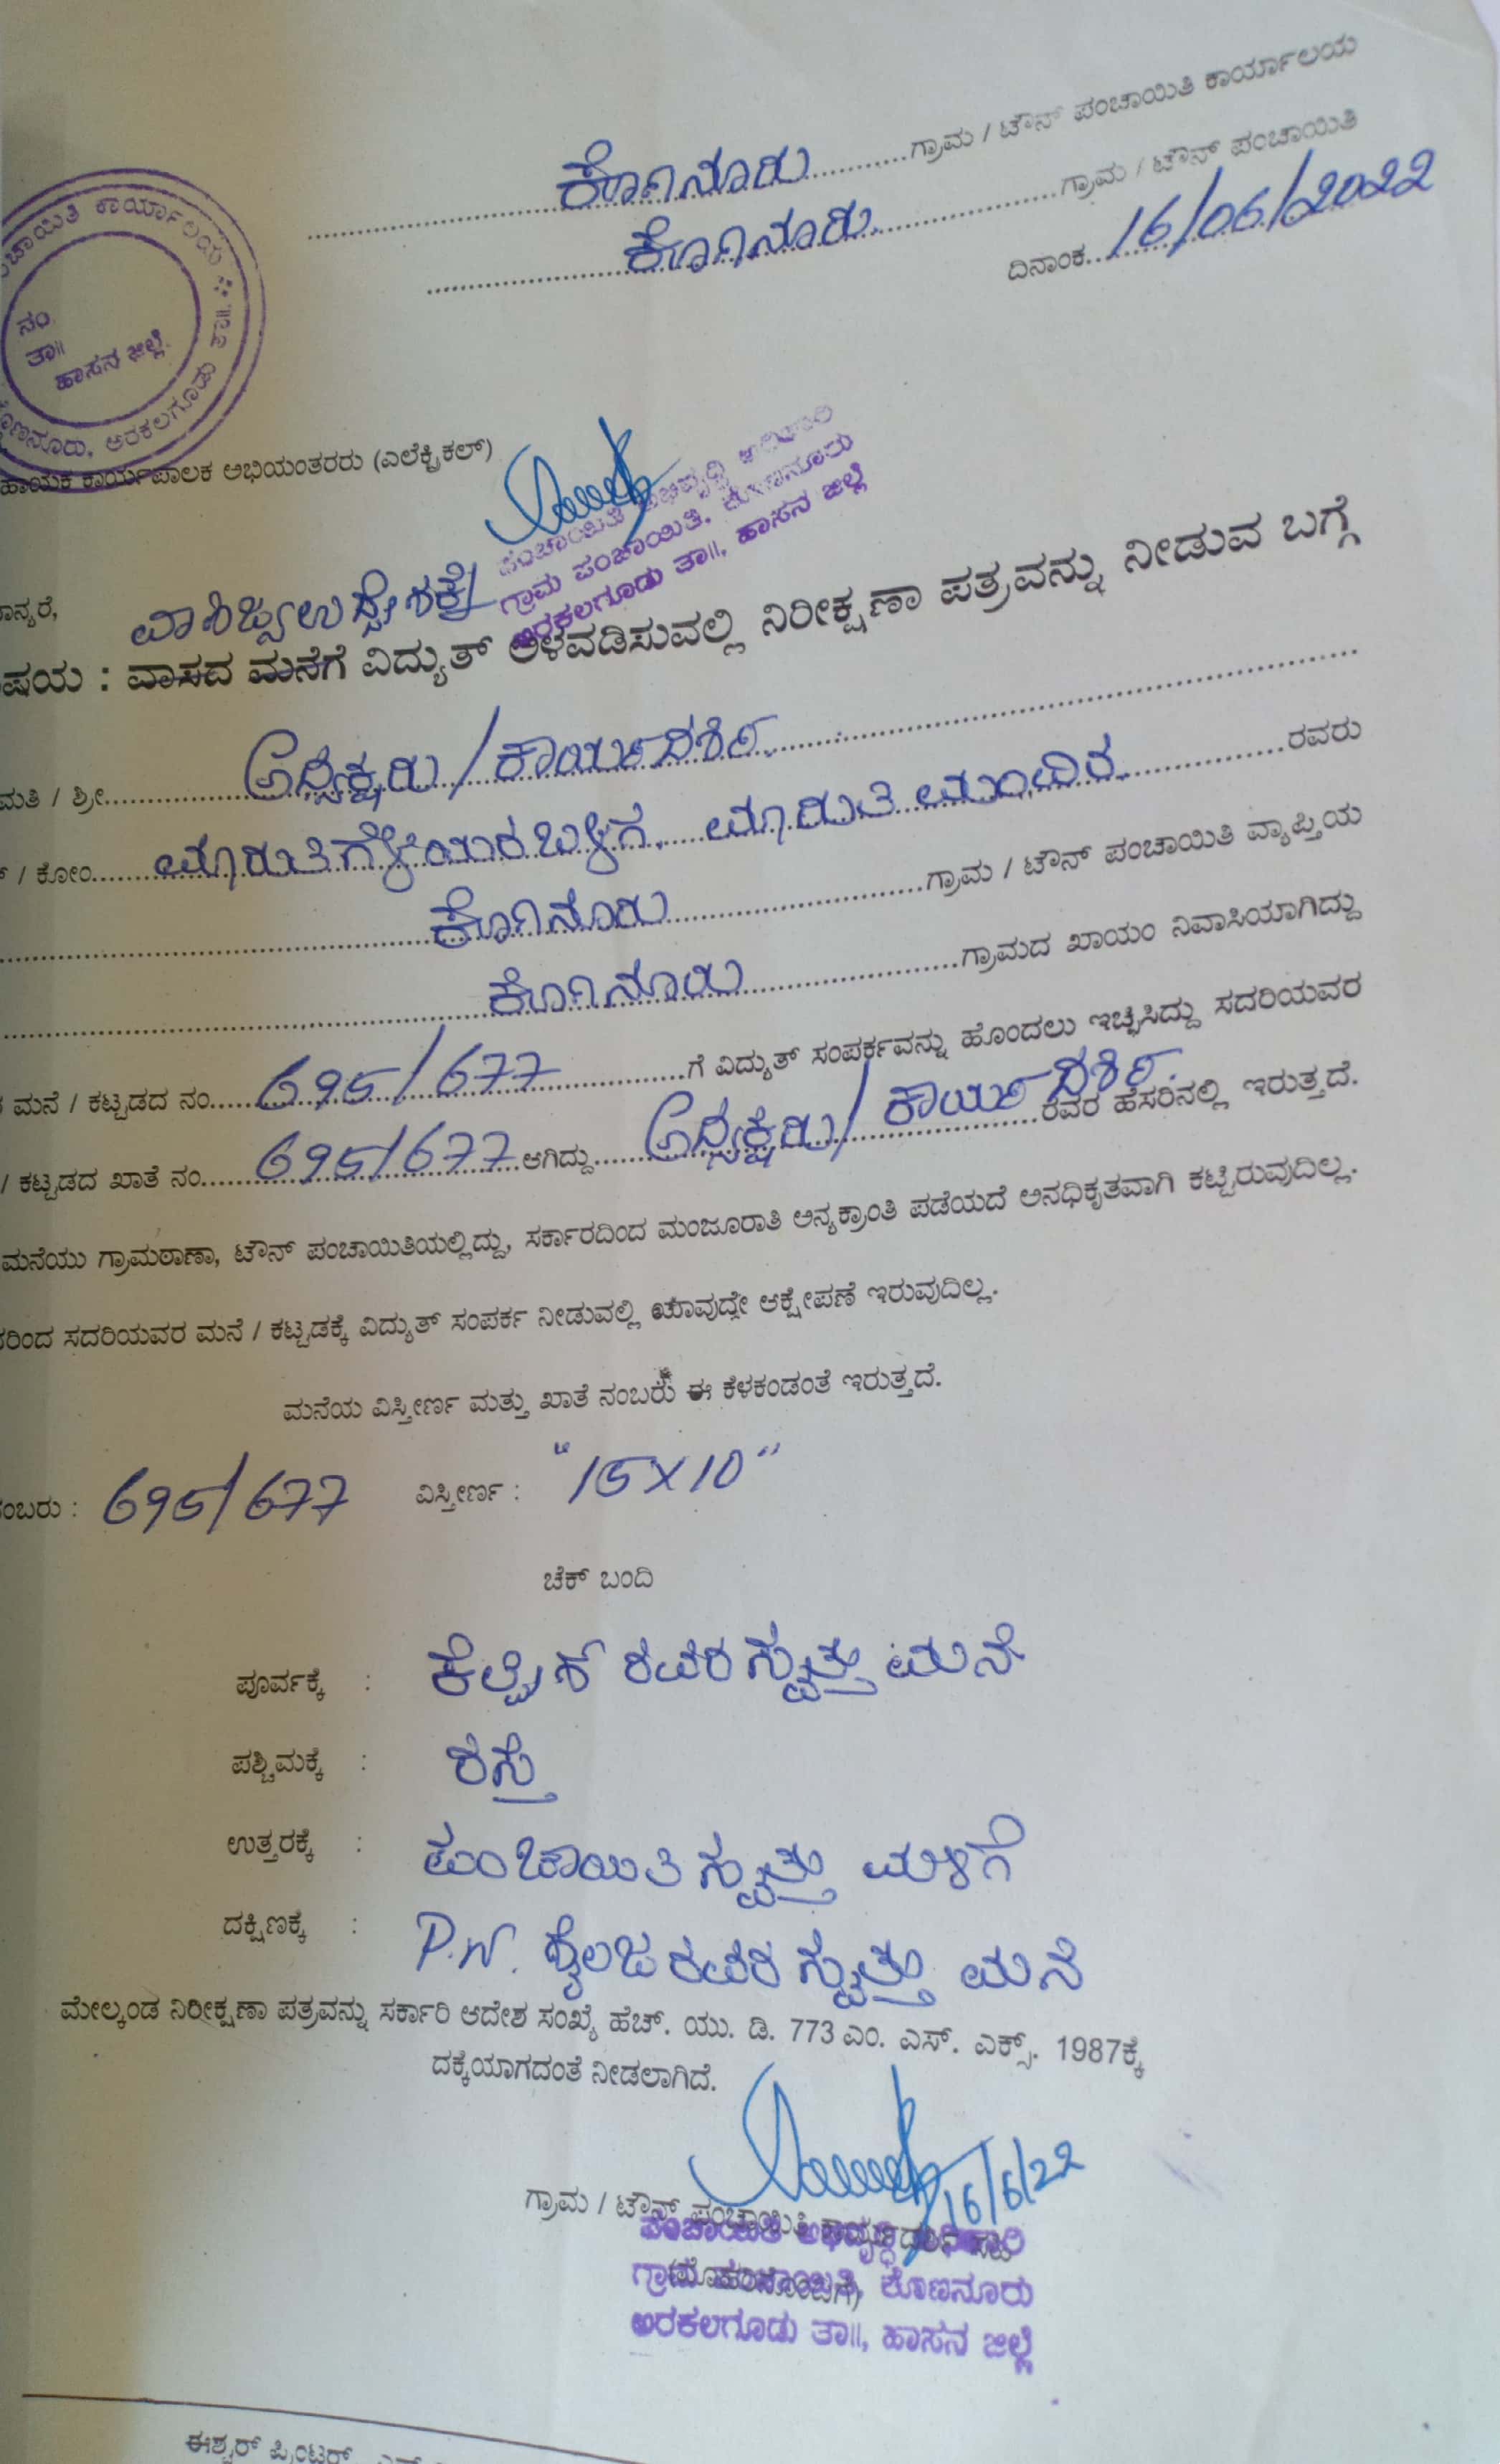 ಕೊಣನೂರು ಗ್ರಾಮ / ಟೌನ್ ಪಂಚಾಯಿತಿ ಕಾರ್ಯಾಲಯ
ಕೊಣನೂರು ಗ್ರಾಮ / ಟೌನ್ ಪಂಚಾಯಿತಿ
ದಿನಾಂಕ 16/06/2022
ಚಾಯಿತಿ ಕಾರ್ಯಾಲಯ
ನಂ
ತಾ॥
ಹಾಸನ ಜಿಲ್ಲೆ.
ಕೊಣನೂರು, ಅರಕಲಗೂಡು ತಾ॥
ಹಾಯಕ ಕಾರ್ಯಪಾಲಕ ಅಭಿಯಂತರರು (ಎಲೆಕ್ಟ್ರಿಕಲ್)
ಪಂಚಾಯಿತಿ ಅಭಿವೃದ್ಧಿ ಅಧಿಕಾರಿ
ಗ್ರಾಮ ಪಂಚಾಯಿತಿ, ಕೊಣನೂರು
ಅರಕಲಗೂಡು ತಾ॥, ಹಾಸನ ಜಿಲ್ಲೆ
ಾನ್ಯರೆ,
ಷಯ : ವಾಸದ ಮನೆಗೆ ವಿದ್ಯುತ್ ಅಳವಡಿಸುವಲ್ಲಿ ನಿರೀಕ್ಷಣಾ ಪತ್ರವನ್ನು ನೀಡುವ ಬಗ್ಗೆ
ಮತಿ / ಶ್ರೀ ಅಧ್ಯಕ್ಷರು / ಕಾರ್ಯದರ್ಶಿ
/ ಕೋಂ ಮಾರುತಿ ಗೆಳೆಯರ ಬಳಗ, ಮಾರುತಿ ಮಂದಿರ ರವರು
ಕೊಣನೂರು ಗ್ರಾಮ / ಟೌನ್ ಪಂಚಾಯಿತಿ ವ್ಯಾಪ್ತಿಯ
ಕೊಣನೂರು ಗ್ರಾಮದ ಖಾಯಂ ನಿವಾಸಿಯಾಗಿದ್ದು
ಮನೆ / ಕಟ್ಟಡದ ನಂ 695/677 ಗೆ ವಿದ್ಯುತ್ ಸಂಪರ್ಕವನ್ನು ಹೊಂದಲು ಇಚ್ಛಿಸಿದ್ದು ಸದರಿಯವರ
/ ಕಟ್ಟಡದ ಖಾತೆ ನಂ 695/677 ಆಗಿದ್ದು ಅಧ್ಯಕ್ಷರು/ ಕಾರ್ಯದರ್ಶಿ ರವರ ಹೆಸರಿನಲ್ಲಿ ಇರುತ್ತದೆ.
ಮನೆಯು ಗ್ರಾಮಠಾಣಾ, ಟೌನ್ ಪಂಚಾಯಿತಿಯಲ್ಲಿದ್ದು, ಸರ್ಕಾರದಿಂದ ಮಂಜೂರಾತಿ ಅನ್ಯಕ್ರಾಂತಿ ಪಡೆಯದೆ ಅನಧಿಕೃತವಾಗಿ ಕಟ್ಟಿರುವುದಿಲ್ಲ.
ರಿಂದ ಸದರಿಯವರ ಮನೆ / ಕಟ್ಟಡಕ್ಕೆ ವಿದ್ಯುತ್ ಸಂಪರ್ಕ ನೀಡುವಲ್ಲಿ ಯಾವುದೇ ಆಕ್ಷೇಪಣೆ ಇರುವುದಿಲ್ಲ.
ಮನೆಯ ವಿಸ್ತೀರ್ಣ ಮತ್ತು ಖಾತೆ ನಂಬರು ಈ ಕೆಳಕಂಡಂತೆ ಇರುತ್ತದೆ.
ಂಬರು : 695/677 ವಿಸ್ತೀರ್ಣ : "15X10"
ಚೆಕ್ ಬಂದಿ
ಪೂರ್ವಕ್ಕೆ : ರವರ ಸ್ವತ್ತು ಮನೆ
ಪಶ್ಚಿಮಕ್ಕೆ : ರಸ್ತೆ
ಉತ್ತರಕ್ಕೆ : ಪಂಚಾಯಿತಿ ಸ್ವತ್ತು ಮಳಿಗೆ
ದಕ್ಷಿಣಕ್ಕೆ : P.N. ಶೈಲಜ ರವರ ಸ್ವತ್ತು ಮನೆ
ಮೇಲ್ಕಂಡ ನಿರೀಕ್ಷಣಾ ಪತ್ರವನ್ನು ಸರ್ಕಾರಿ ಆದೇಶ ಸಂಖ್ಯೆ ಹೆಚ್. ಯು. ಡಿ. 773 ಎಂ. ಎಸ್. ಎಕ್ಸ್. 1987ಕ್ಕೆ
ದಕ್ಕೆಯಾಗದಂತೆ ನೀಡಲಾಗಿದೆ.
16/6/22
ಗ್ರಾಮ / ಟೌನ್ ಪಂಚಾಯಿತಿ
ಪಂಚಾಯಿತಿ ಅಭಿವೃದ್ಧಿ ಅಧಿಕಾರಿ
ಗ್ರಾಮ ಪಂಚಾಯಿತಿ, ಕೊಣನೂರು
ಅರಕಲಗೂಡು ತಾ॥, ಹಾಸನ ಜಿಲ್ಲೆ
ಈಶ್ವರ್ ಪ್ರಿಂಟರ್